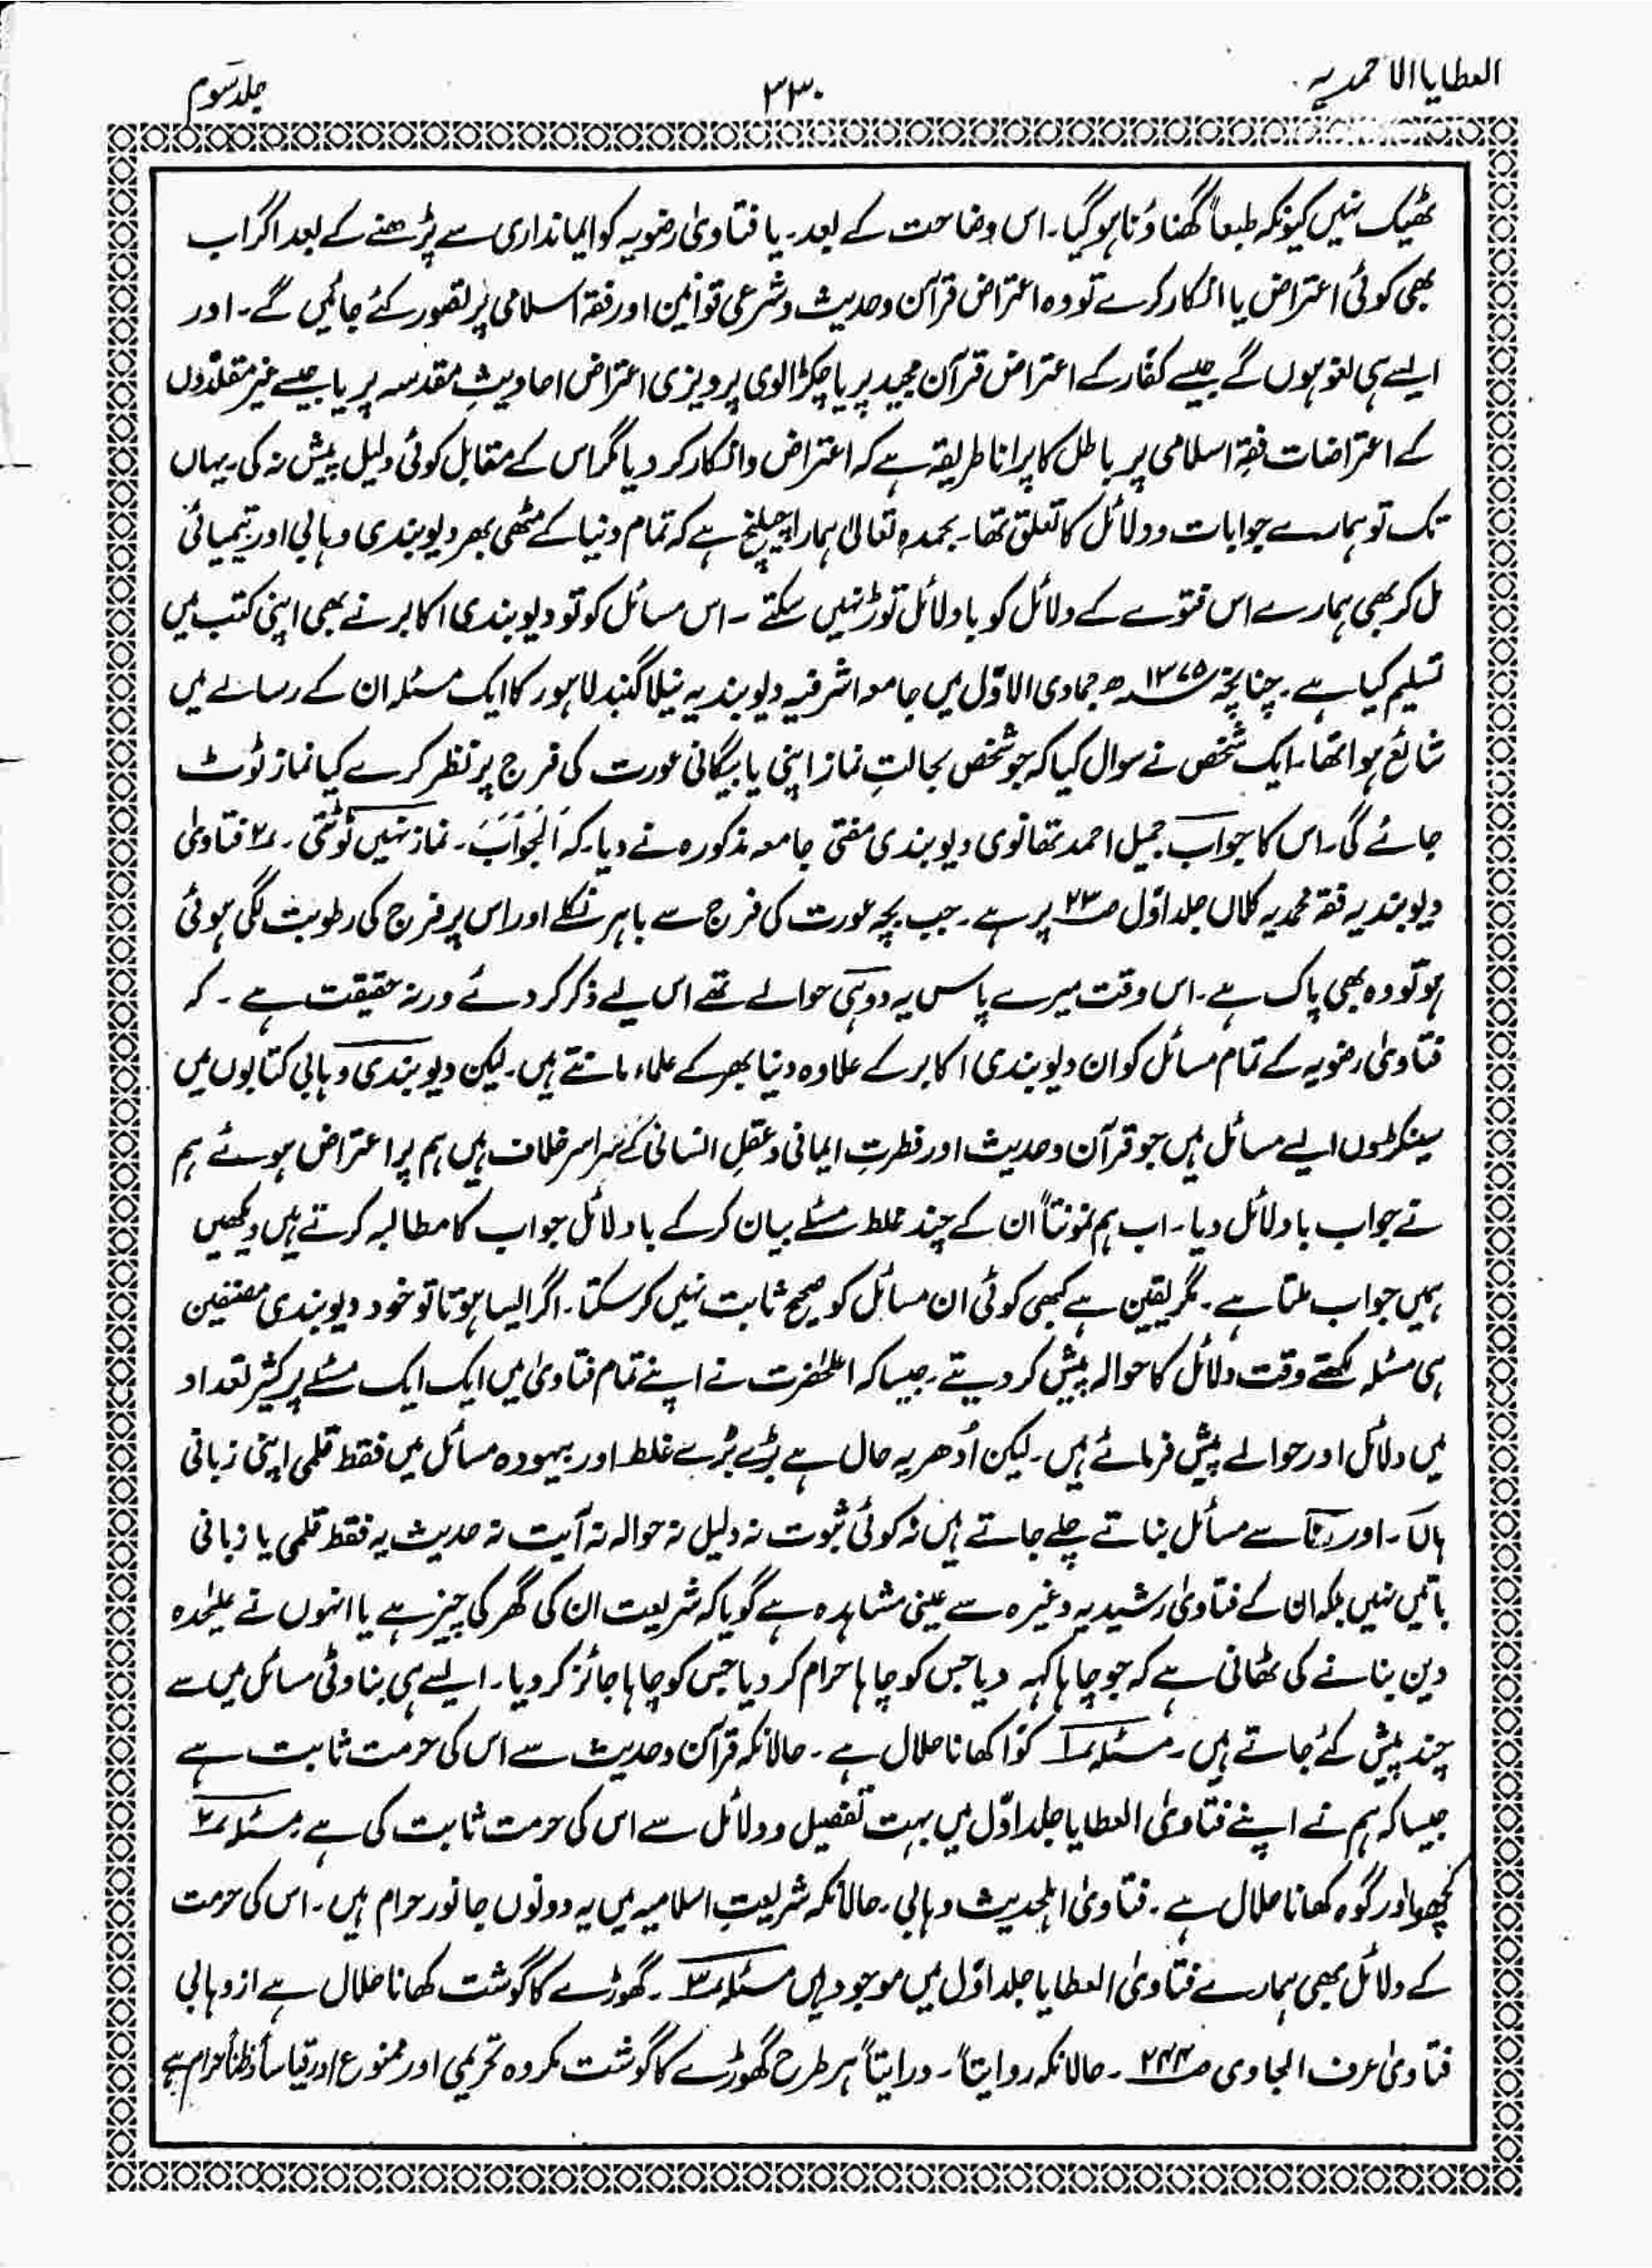 العطایا الاحمدیہ
۳۳۰
جلد سوم
ٹھیک نہیں کیونکہ طبعاً گھناؤنا ہو گیا۔ اس وضاحت کے بعد۔ یا فتاویٰ رضویہ کو ایمانداری سے پڑھنے کے بعد اگر اب
بھی کوئی اعتراض یا انکار کرے تو وہ اعتراض قرآن وحدیث وشرعی قوانین اور فقہ اسلامی پر تصور کئے جائیں گے۔ اور
ایسے ہی لغو ہوں گے جیسے کفار کے اعتراض قرآن مجید پر یا چکڑالوی پرویزی اعتراض احادیثِ مقدسہ پر یا جیسے غیر مقلدوں
کے اعتراضات فقہِ اسلامی پر باطل کا پرانا طریقہ ہے کہ اعتراض وانکار کر دیا مگر اس کے مقابل کوئی دلیل پیش نہ کی۔ یہاں
تک تو ہمارے جوابات ودلائل کا تعلق تھا۔ بحمدہ تعالیٰ ہمارا چیلنج ہے کہ تمام دنیا کے مٹھی بھر دیوبندی وہابی اور تیمیائی
مل کر بھی ہمارے اس فتوے کے دلائل کو بادلائل توڑ نہیں سکتے ۔ اس مسائل کو تو دیوبندی اکابر نے بھی اپنی کتب میں
تسلیم کیا ہے۔ چنانچہ ۱۳۷۵ھ جمادی الاوّل میں جامعہ اشرفیہ دیوبندیہ نیلا گنبد لاہور کا ایک مسئلہ ان کے رسالے میں
شائع ہوا تھا۔ ایک شخص نے سوال کیا کہ جو شخص بحالتِ نماز اپنی یا بیگانی عورت کی فرج پر نظر کرے کیا نماز ٹوٹ
جائے گی۔ اس کا جواب جمیل احمد تھانوی دیوبندی مفتی جامعہ مذکورہ نے دیا۔ کہ اَلْجَوَابُ۔ نماز نہیں ٹوٹتی۔ ۲ فتاویٰ
دیوبندیہ فقہ محمدیہ کلاں جلد اوّل صـ ۲۳ پر ہے۔ جب بچہ عورت کی فرج سے باہر نکلے اور اس پر فرج کی رطوبت لگی ہوئی
ہو تو وہ بھی پاک ہے۔ اس وقت میرے پاس یہ دو ہی حوالے تھے اس لیے ذکر کر دئے ورنہ حقیقت ہے ۔ کہ
فتاویٰ رضویہ کے تمام مسائل کو ان دیوبندی اکابر کے علاوہ دنیا بھر کے علماء مانتے ہیں۔ لیکن دیوبندی وہابی کتابوں میں
سینکڑوں ایسے مسائل ہیں جو قرآن وحدیث اور فطرتِ ایمانی وعقلِ انسانی کے سراسر خلاف ہیں ہم پر اعتراض ہوئے ہم
نے جواب بادلائل دیا۔ اب ہم نمونتاً ان کے چند غلط مسئلے بیان کر کے بادلائل جواب کا مطالبہ کرتے ہیں دیکھیں
ہمیں جواب ملتا ہے۔ مگر یقین ہے کبھی کوئی ان مسائل کو صحیح ثابت نہیں کر سکتا۔ اگر ایسا ہوتا تو خود دیوبندی مصنفین
ہی مسئلہ لکھتے وقت دلائل کا حوالہ پیش کر دیتے۔ جیسا کہ اعلحضرت نے اپنے تمام فتاویٰ میں ایک ایک مسئلے پر کثیر تعداد
میں دلائل اور حوالے پیش فرمائے ہیں۔ لیکن اُدھر یہ حال ہے بڑے بڑے غلط اور بیہودہ مسائل میں فقط قلمی اپنی زبانی
اور سے مسائل بناتے چلے جاتے ہیں نہ کوئی ثبوت نہ دلیل نہ حوالہ نہ آیت نہ حدیث یہ فقط قلمی یا زبانی
باتیں نہیں بلکہ ان کے فتاویٰ رشیدیہ وغیرہ سے عینی مشاہدہ ہے گویا کہ شریعت ان کی گھر کی چیز ہے یا انہوں نے علیحدہ
دین بنانے کی ٹھانی ہے کہ جو چاہا کہہ دیا جس کو چاہا حرام کر دیا جس کو چاہا جائز کر دیا۔ ایسے ہی بناوٹی مسائل میں سے
چند پیش کئے جاتے ہیں۔ مسئلہ ۱ کوّا کھانا حلال ہے۔ حالانکہ قرآن وحدیث سے اس کی حرمت ثابت ہے
جیسا کہ ہم نے اپنے فتاویٰ العطایا جلد اوّل میں بہت تفصیل ودلائل سے اس کی حرمت ثابت کی ہے۔ مسئلہ ۲
کچھوا اور گوہ کھانا حلال ہے۔ فتاویٰ اہلحدیث وہابی۔ حالانکہ شریعتِ اسلامیہ میں یہ دونوں جانور حرام ہیں۔ اس کی حرمت
کے دلائل بھی ہمارے فتاویٰ العطایا جلد اوّل میں موجود ہیں مسئلہ ۳۔ گھوڑے کا گوشت کھانا حلال ہے از وہابی
فتاویٰ عرف الجاوی صـ ۲۴۴۔ حالانکہ روایتاً۔ درایتاً ہر طرح گھوڑے کا گوشت مکروہ تحریمی اور ممنوع اور قیاساً وظناً حرام ہے